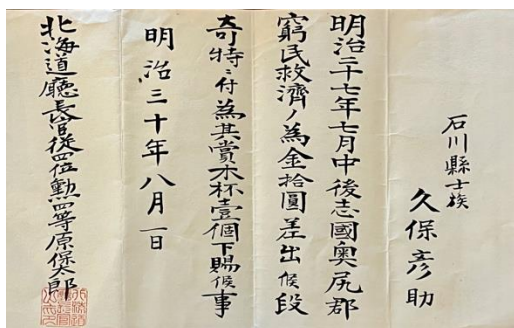 石川縣士族
久保彦助
明治二十七年七月中後志國奥尻郡
窮民救濟ノ為金拾圓差出候段
奇特ニ付為其賞木杯壹個下賜候事
明治三十年八月一日
北海道廳長官從四位勳四等原保太郎